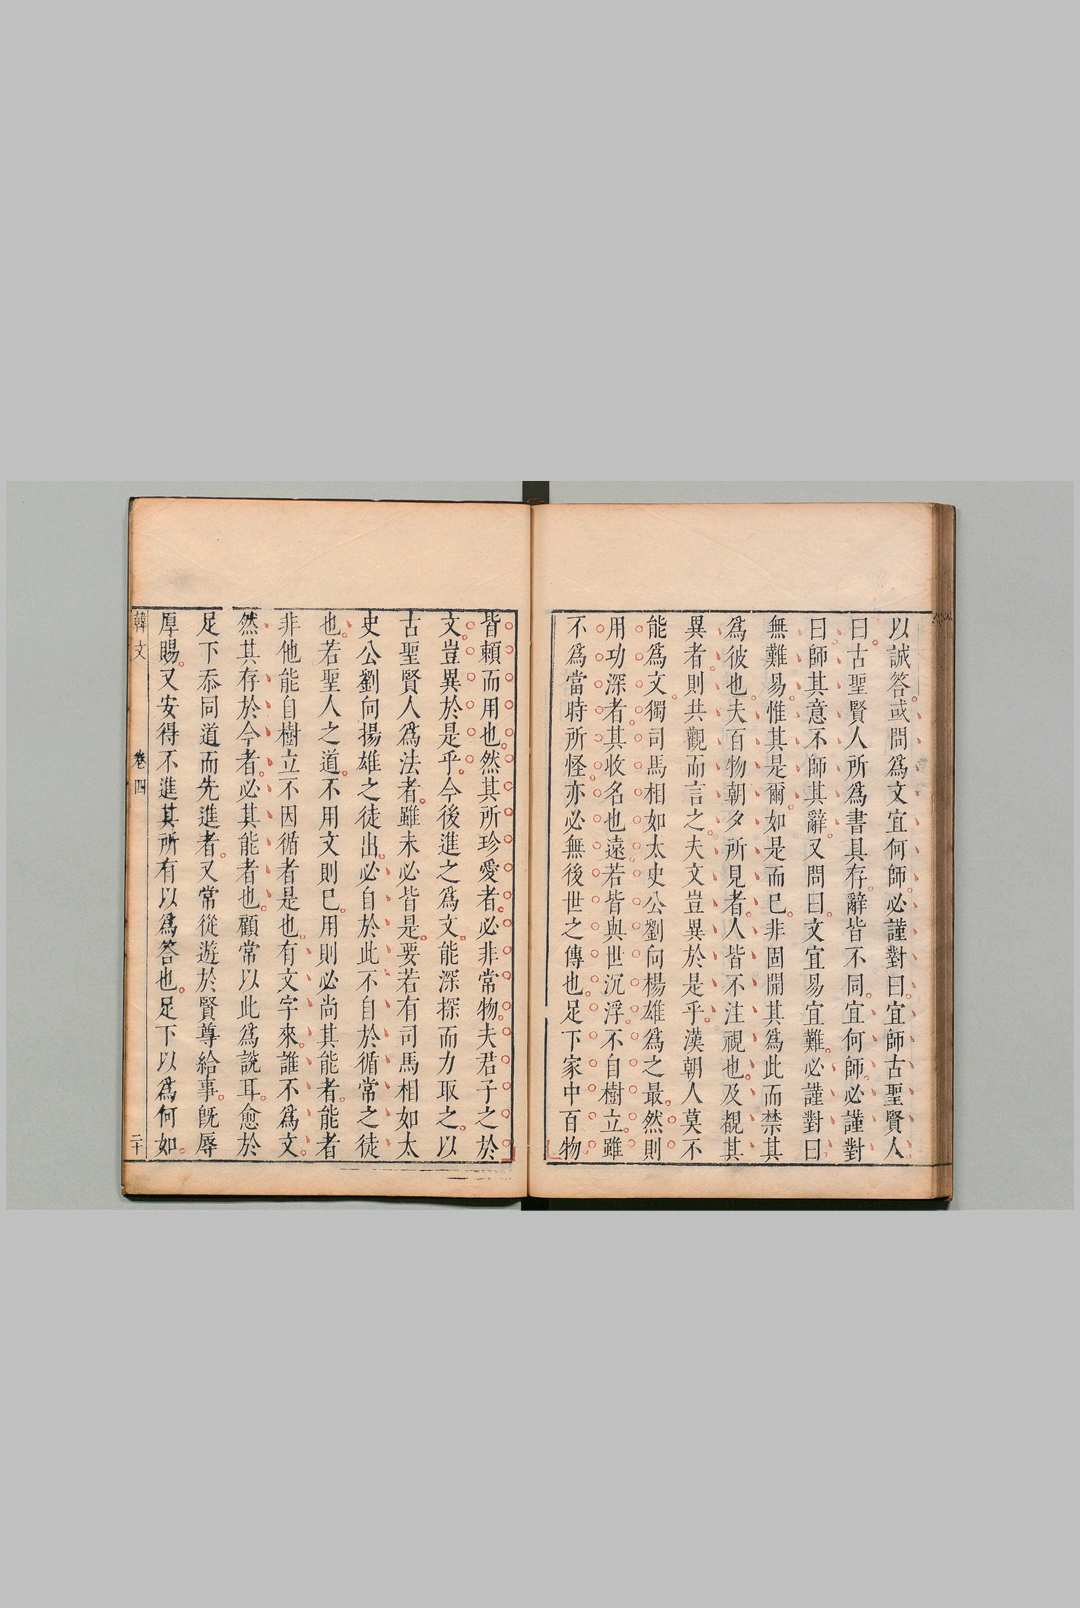 以誠答或問爲文宜何師必謹對曰宜師古聖賢人
曰古聖賢人所爲書具存辭皆不同宜何師必謹對
曰師其意不師其辭又問曰文宜易宜難必謹對曰
無難易惟其是爾如是而已非固開其爲此而禁其
爲彼也夫百物朝夕所見者人皆不注視也及覩其
異者則共觀而言之夫文豈異於是乎漢朝人莫不
能爲文獨司馬相如太史公劉向楊雄爲之最然則
用功深者其收名也遠若皆與世沉浮不自樹立雖
不爲當時所怪亦必無後世之傳也足下家中百物
皆賴而用也然其所珍愛者必非常物夫君子之於
文豈異於是乎今後進之爲文能深探而力取之以
古聖賢人爲法者雖未必皆是要若有司馬相如太
史公劉向揚雄之徒出必自於此不自於循常之徒
也若聖人之道不用文則已用則必尚其能者能者
非他能自樹立不因循者是也有文字來誰不爲文
然其存於今者必其能者也顧常以此爲說耳愈於
足下忝同道而先進者又常從遊於賢尊給事旣辱
厚賜又安得不進其所有以爲答也足下以爲何如
韓文 卷四 二十